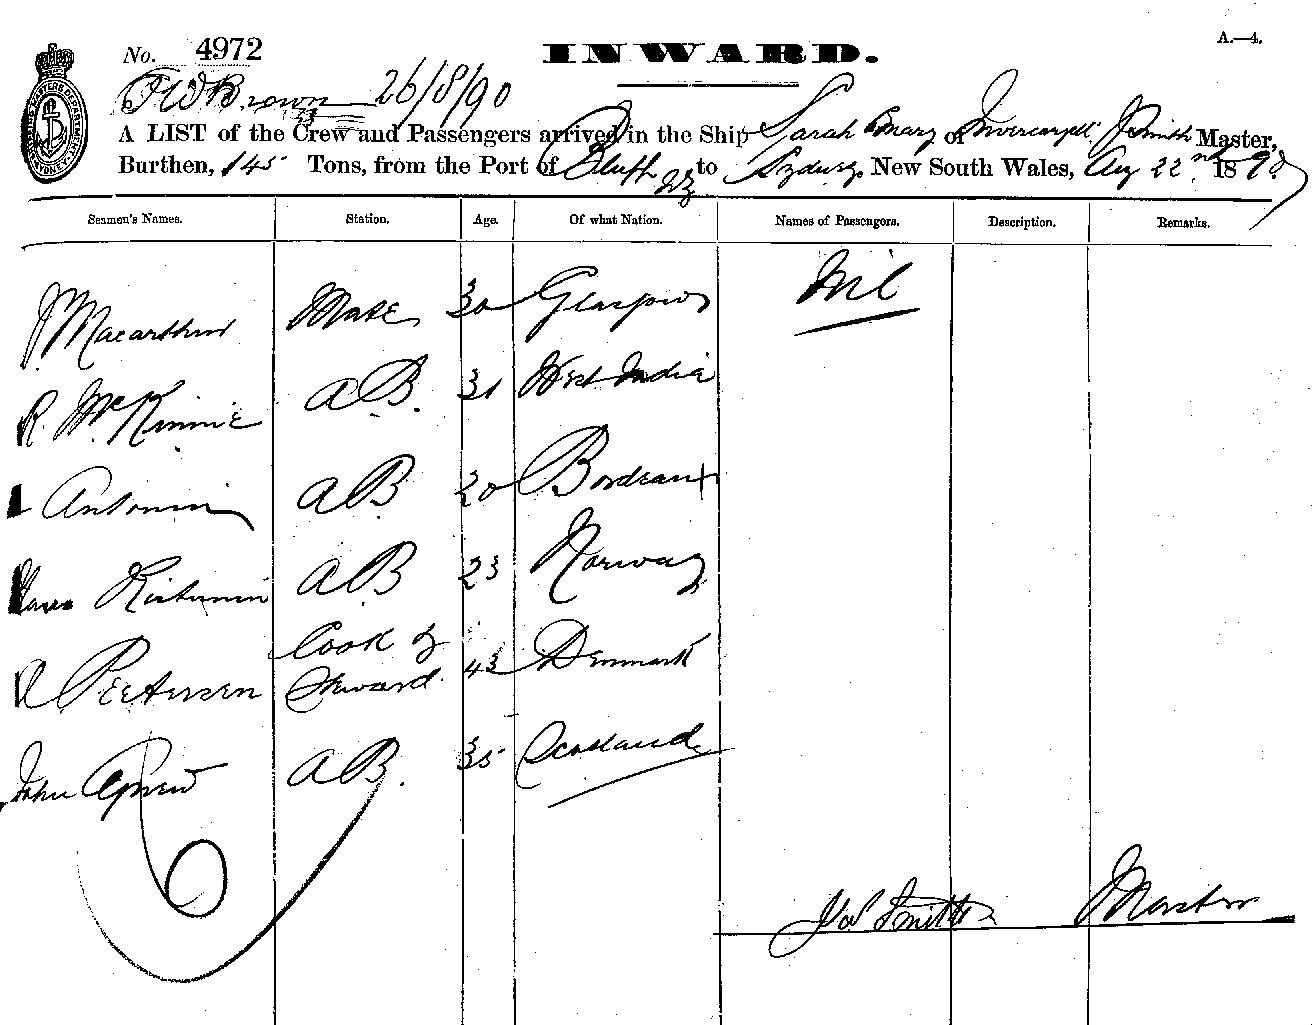 A.—4.
No. 4972
INWARD.
F W Brown 26/8/90
A LIST of the Crew and Passengers arrived in the Ship Sarah & Mary of Invercargill J Smith Master,
Burthen, 145 Tons, from the Port of Bluff NZ to Sydney, New South Wales, Aug 22nd 1890
Seamen's Names. Station. Age. Of what Nation. Names of Passengers. Description. Remarks.
J Macarthur Mate 30 Glasgow Nil
R. McKinnie AB. 31 West India
Antonin AB 20 Bordeaux
AB 23 Norway
Peetersen Cook & Steward 43 Denmark
John Agnew AB. 35 Scotland
Jas Smith Master